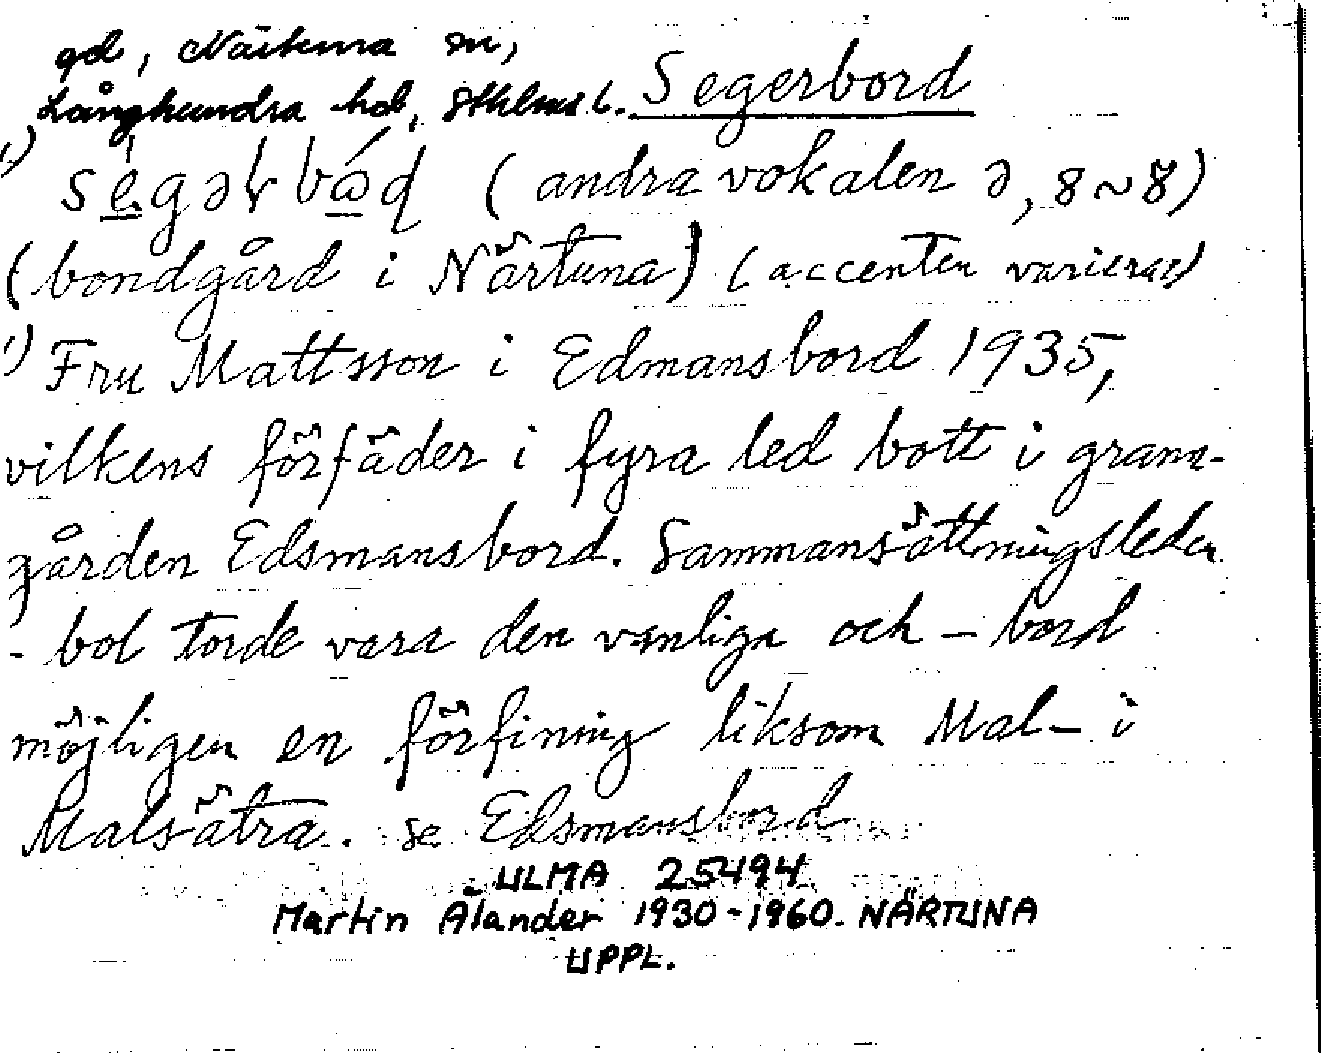 gd, Närtuna sn,
Långhundra hd, Sthlms l. Segerbord
1)ségərbɷ́ɖ (andra vokalen ə, 8~8)
(bondgård i Närtuna) (accenten varierar)
1) Fru Mattsson i Edmansbord 1935,
vilkens förfäder i fyra led bott i grann-
gården Edsmansbord. Sammansättningsleden
- bol torde vara den vanliga och - bord
möjligen en förfining liksom Mal- i
Malsätra. se Edsmansbord
ULMA 25494
Martin Ålander 1930-1960. NÄRTUNA
UPPL.